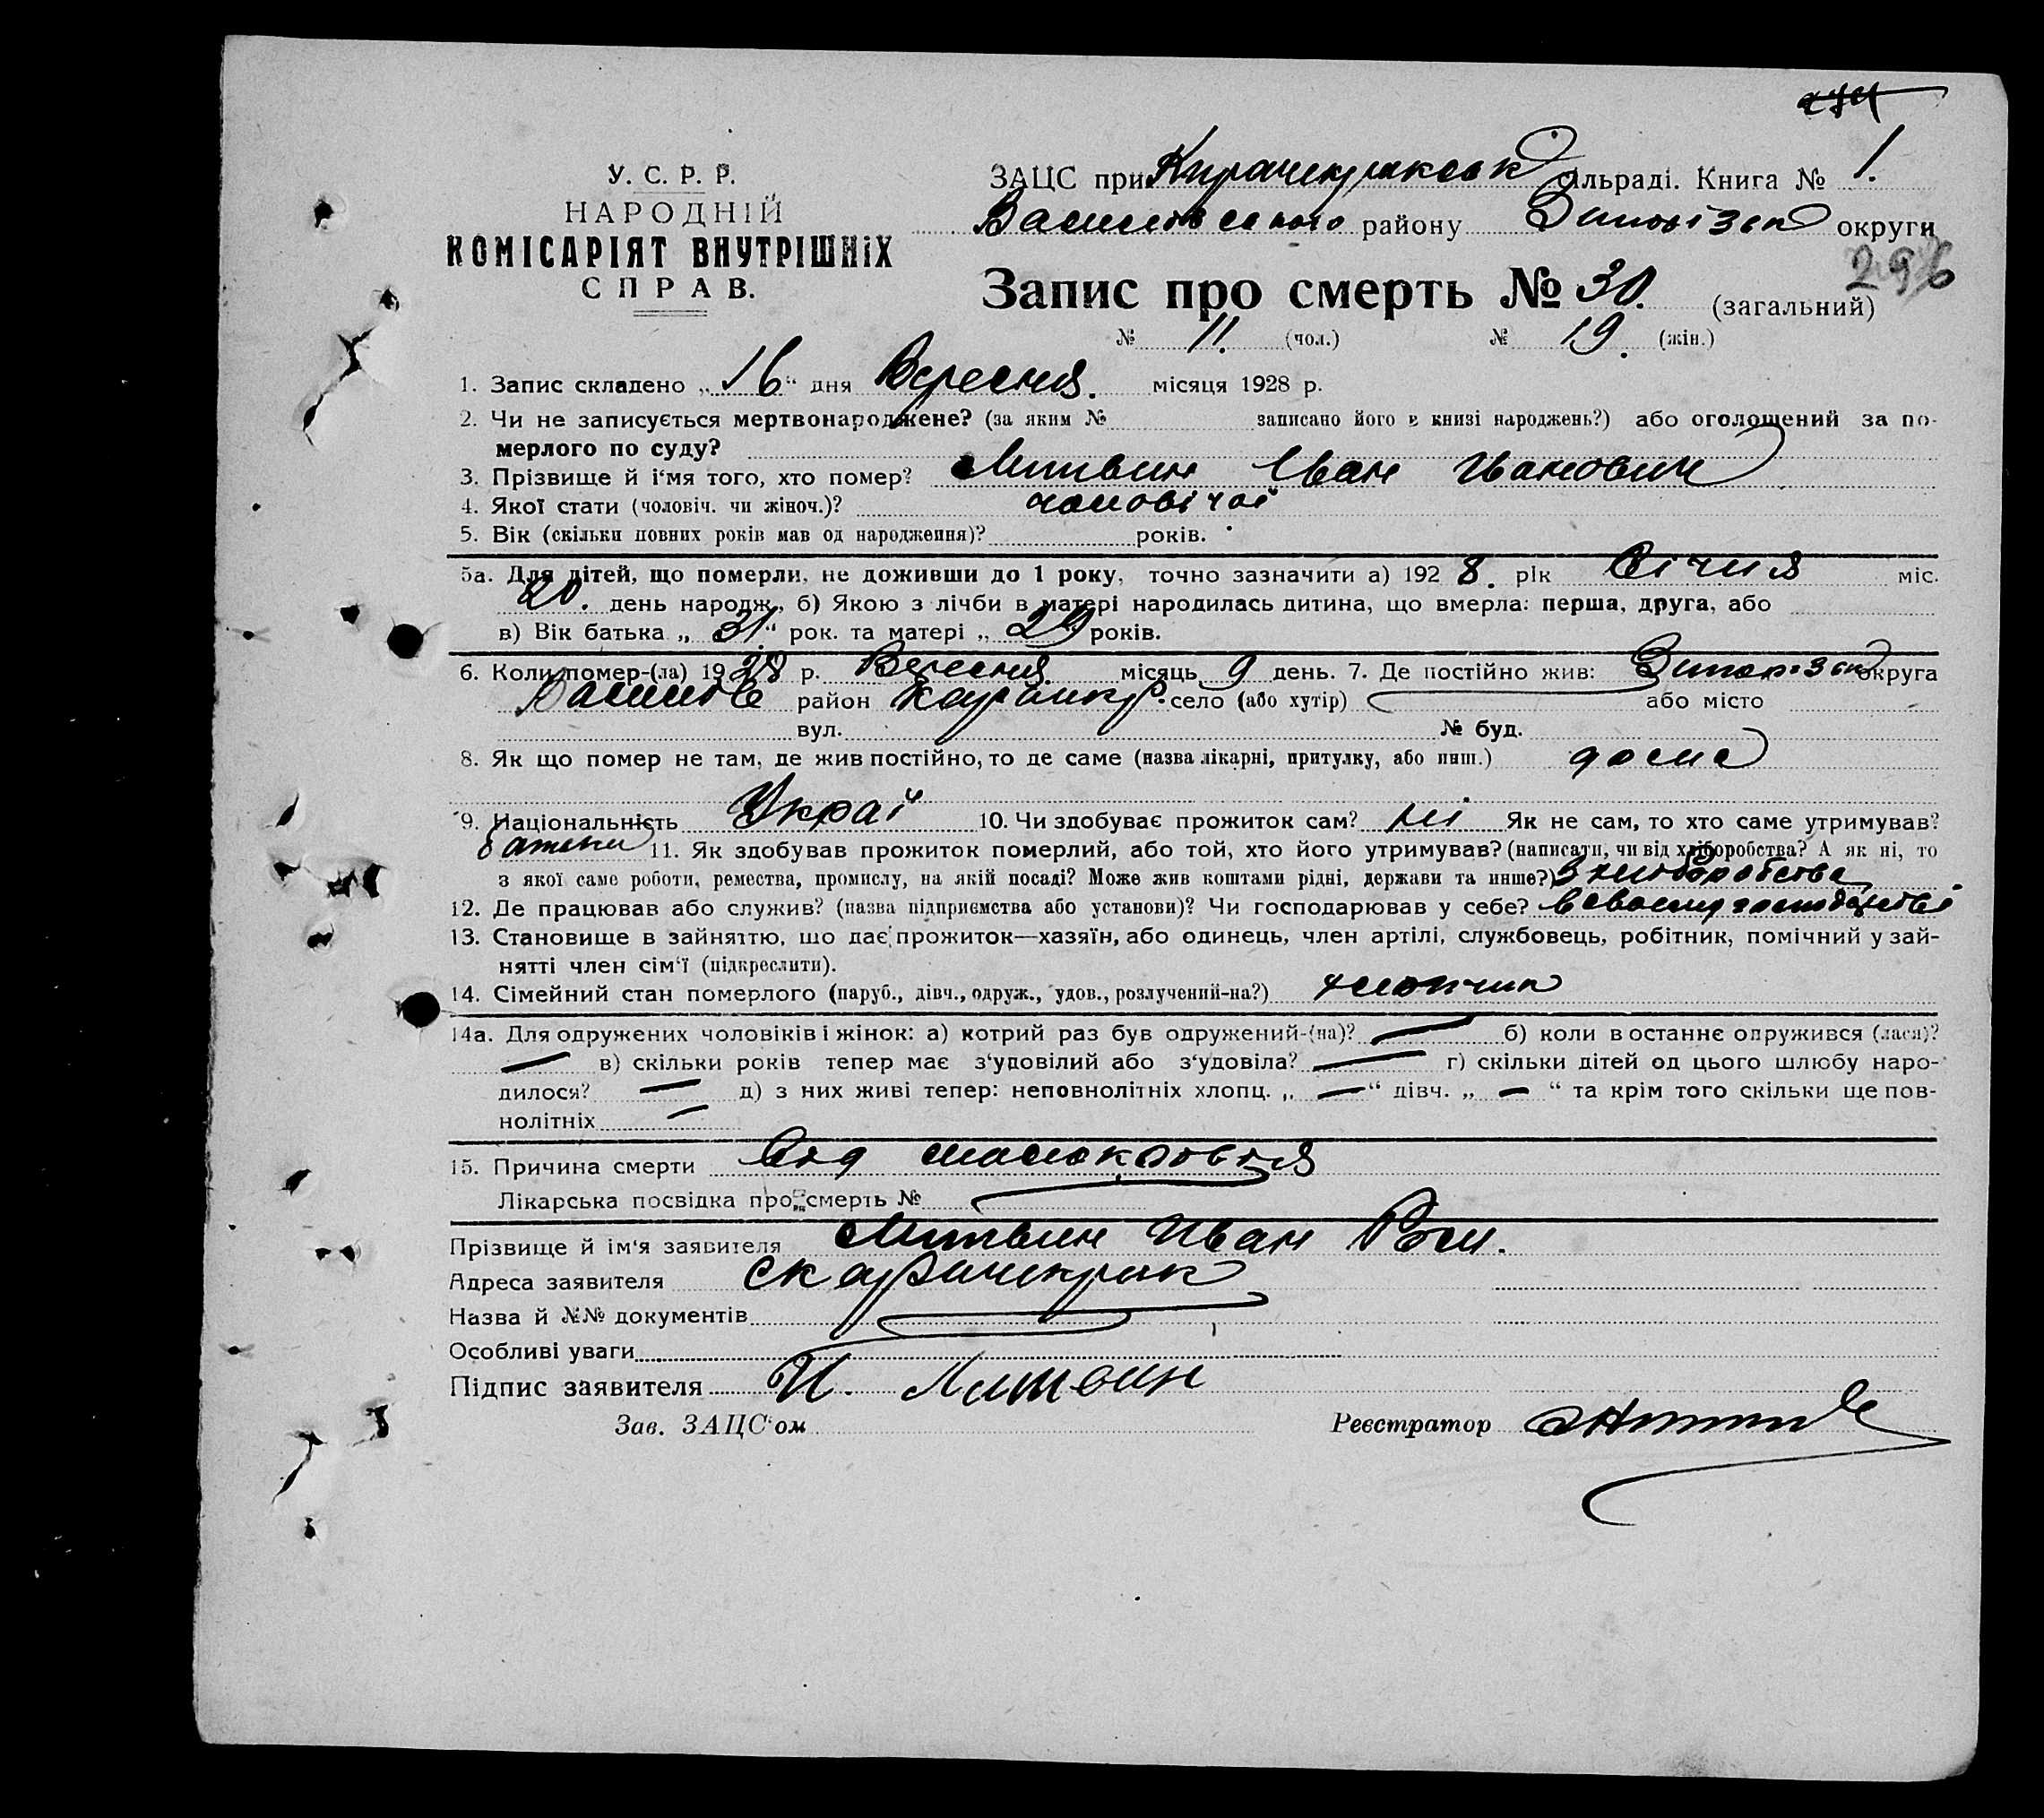 У. С. Р. Р.
НАРОДНІЙ
КОМІСАРІЯТ ВНУТРІШНІХ
СПРАВ.
ЗАЦС при сільраді. Книга № 1.
Василівського району Запорізьк округи
296
Запис про смерть № 30. (загальний)
№ 11. (чол.) № 19. (жін.)
1. Запис складено „16“ дня Вересня. місяця 1928 р.
2. Чи не записується мертвонароджене? (за яким № записано його в книзі народжень?) або оголощений за по-
мерлого по суду?
3. Прізвище й і‘мя того, хто помер? Литвин Іван Иванович
4. Якої стати (чоловіч. чи жіноч.)? чоловічої
5. Вік (скільки повних років мав од народження)? років.
5а. Для дітей, що померли, не доживши до 1 року, точно зазначити а) 1928. рік Січня міс.
20. день народж., б) Якою з лічби в матері народилась дитина, що вмерла: перша, друга, або
в) Вік батька „31“ рок. та матері „29 років.
6. Коли помер-(ла) 1928 р. Вересня місяць 9 день. 7. Де постійно жив: Запорізьк округа
район село (або хутір) або місто
вул. № буд.
8. Як що помер не там, де жив постійно, то де саме (назва лікарні, притулку, або инш.) дома
9. Національність Украї 10. Чи здобуває прожиток сам? ні Як не сам, то хто саме утримував?
батьки 11. Як здобував прожиток померлий, або той, хто його утримував? (написати, чи від хліборобства? А як ні, то
з якої саме роботи, ремества, промислу, на якій посаді? Може жив коштами рідні, держави та инше?) З хліборобства
12. Де працював або служив? (назва підприємства або установи)? Чи господарював у себе? в своєму господарстві
13. Становище в зайняттю, що дає прожиток—хазяїн, або одинець, член артілі, службовець, робітник, помічний у зай-
нятті член сім‘ї (підкреслити).
14. Сімейний стан померлого (паруб., дівч., одруж., удов., розлучений-на?) хлопчик
14а. Для одружених чоловіків і жінок: а) котрий раз був одружений-(на)? — б) коли в останнє одружився (лася)?
— в) скільки років тепер має з‘удовілий або з‘удовіла? — г) скільки дітей од цього шлюбу наро-
дилося? — д) з них живі тепер: неповнолітніх хлопц. „—“ дівч. „—“ та крім того скільки ще пов-
нолітніх —
15. Причина смерти Від малокровія
Лікарська посвідка про смерть №
Прізвище й ім‘я заявителя Литвин Иван
Адреса заявителя
Назва й №№ документів
Особливі уваги
Підпис заявителя И. Литвин
Зав. ЗАЦС‘ом Реєстратор